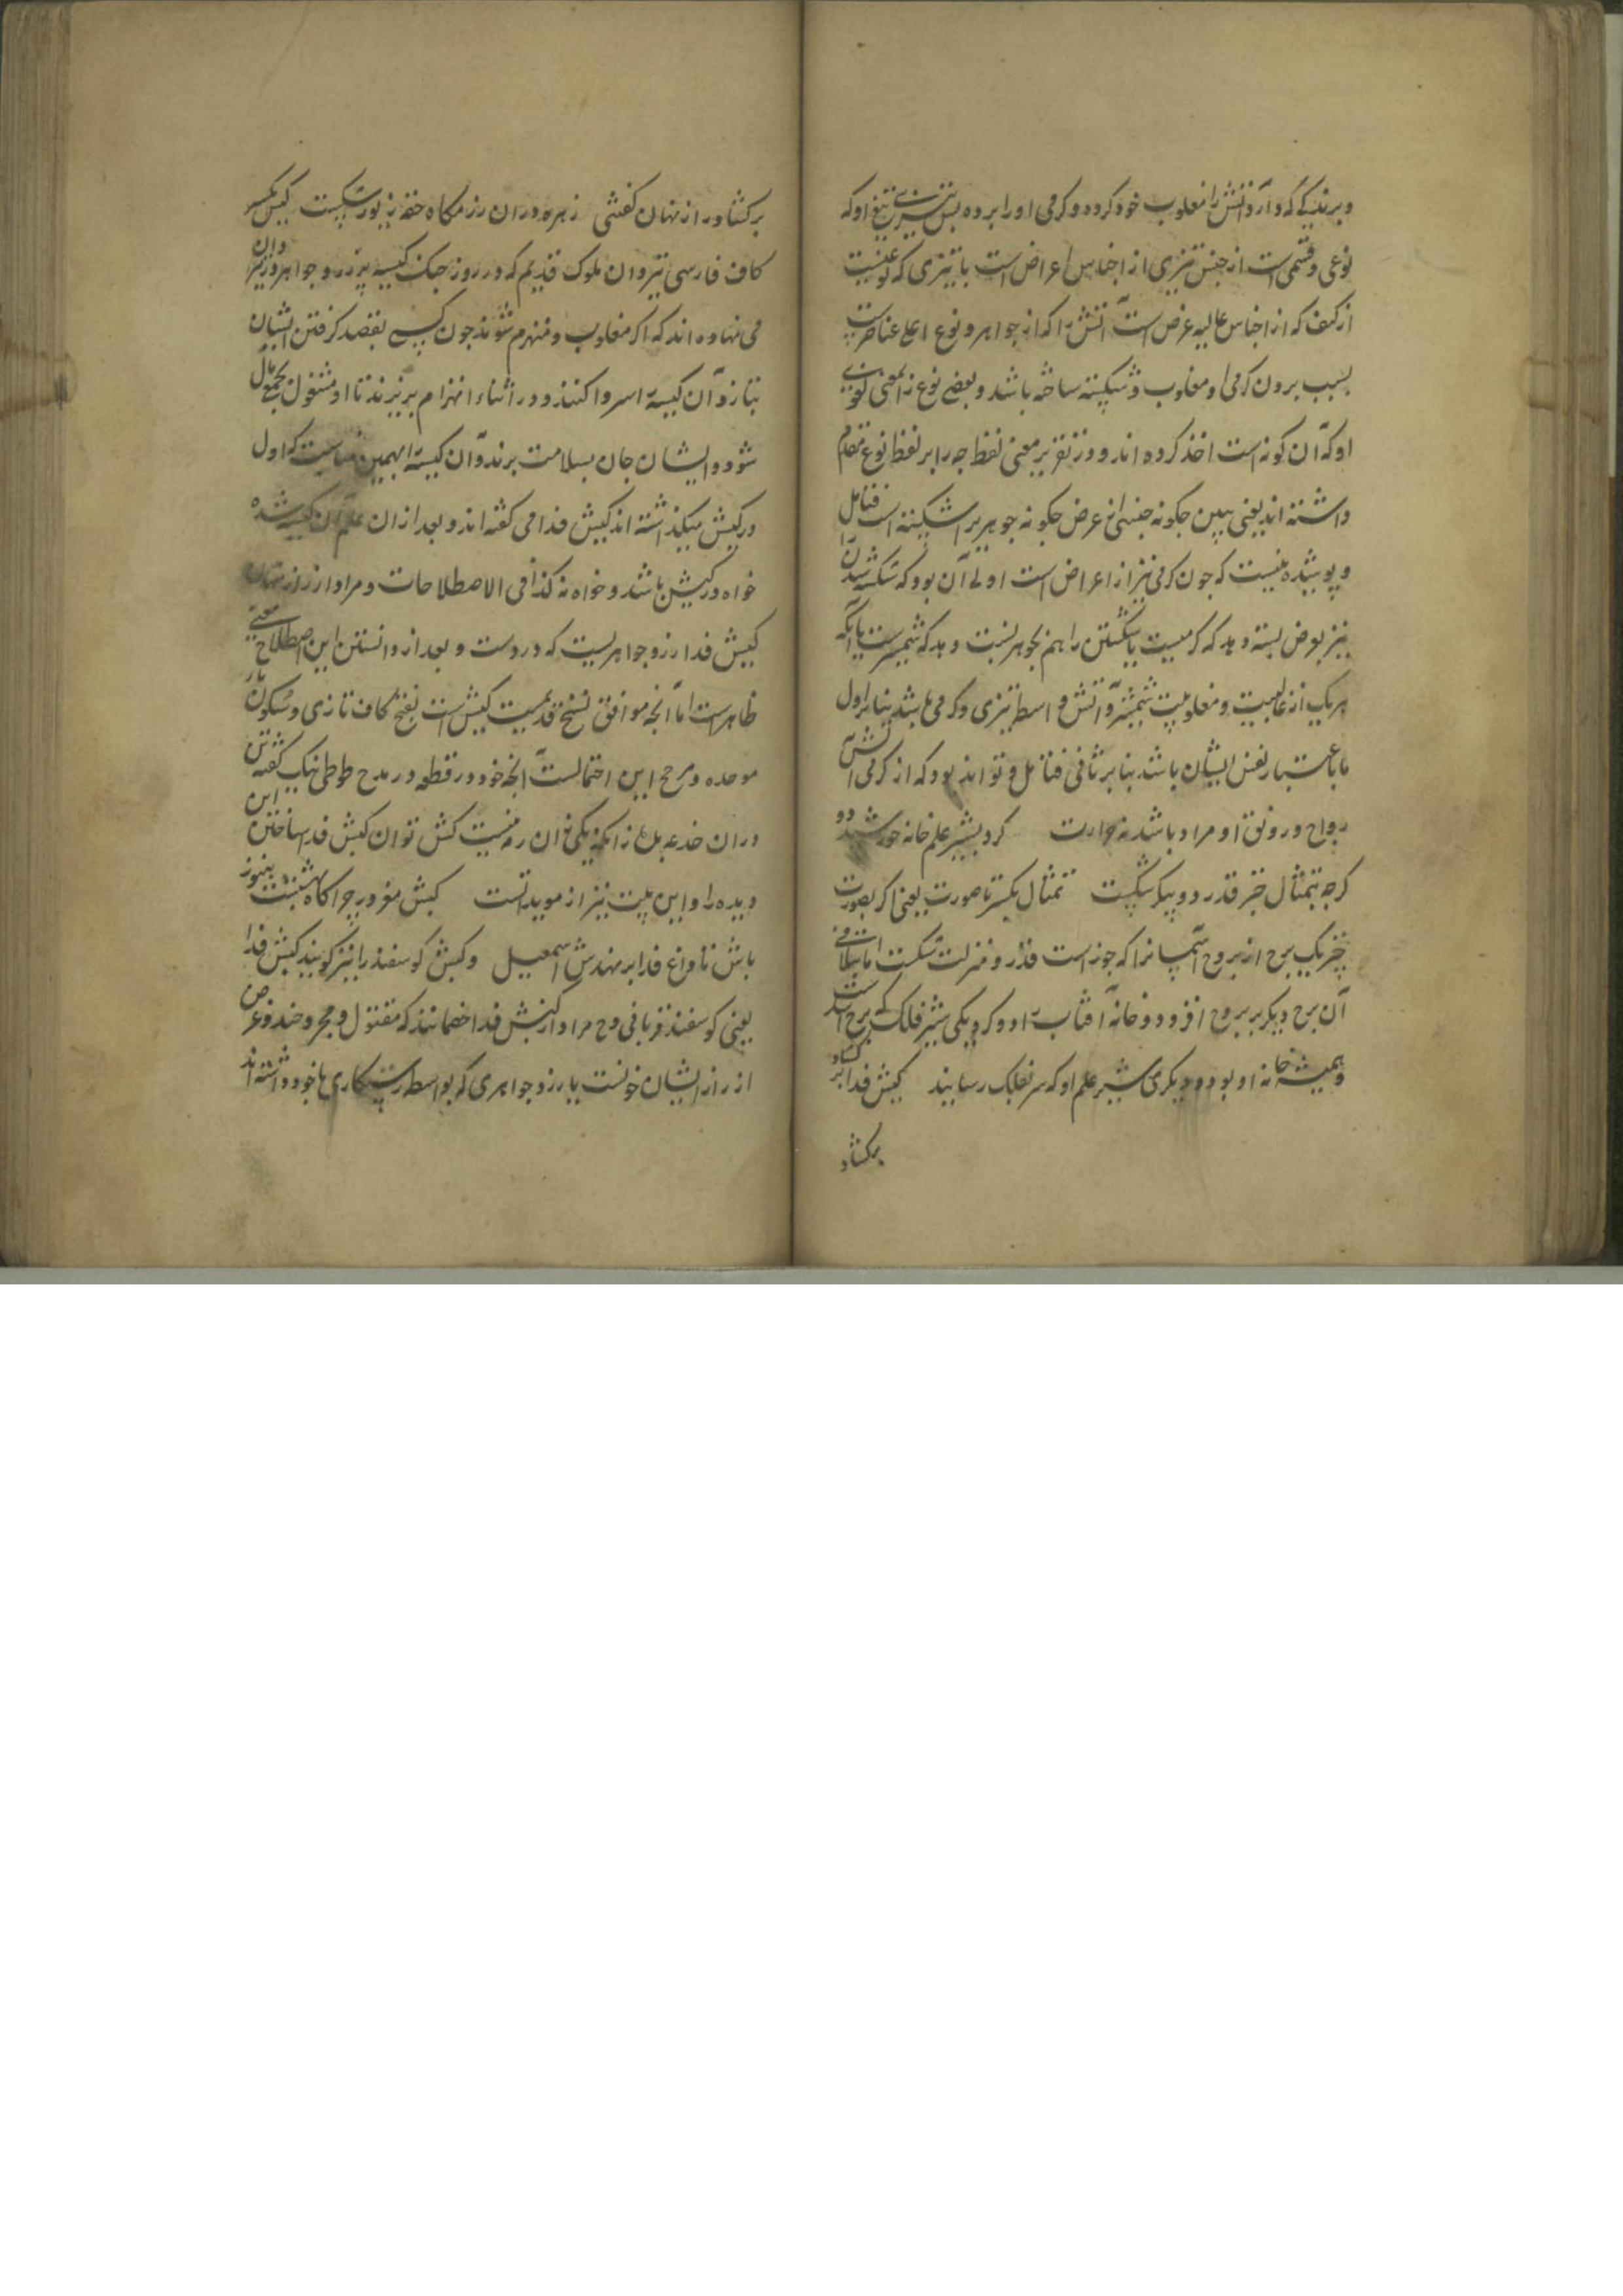 و برندگی که دارد آتش را مغلوب خود کرده و کرمی او را برده پس تیزی تیغ او که
نوعی و قسمی است از جنس تیزی از اجناس اعراض است یا تیزی که نوعیست
از کیف که از اجناس عالیه عرض است آتش را که از جواهر و نوع اعلی عناصر است
بسبب بردن کرمی او مغلوب و شکسته ساخته باشد و بعضی نوع را بمعنی لغوی
او که آن کونه است اخذ کرده اند و در تقریر معنی لفظ چه را بر لفظ نوع مقدم
داشته اند یعنی ببین چکونه جنسی از عرض چکونه جوهریرا شکسته است فتامل
و پوشیده نیست که چون کرمی نیز از اعراض است اولی آن بود که شکسته شدن را
نیز بعرض نسبت دهد که کرمیست یا شکستن را هم بجوهر نسبت دهد که شمشیرست یا آنکه
هر یک از غالبیت و مغلوبیت شمشیر و آتش بواسطه تیزی و کرمی باشد بنا بر اول
یا باعتبار نفس ایشان باشد بنا بر ثانی فتامل و تواند بود که از کرمی آتش
رواج و رونق او مراد باشد نه حرارت کرد بشیر علم خانه خورشید دو
کرچه بتمثال خنجر قدر دو پیکر شکست تمثال یکسر تا صورت یعنی اکر بصورت
خنجر یک برج از بروج آسمانرا که جوزاست قدر و منزلت شکست اما بتلافی
آن برج دیکر بر بروج افزود و خانه آفتاب را دو کرد یکی شیر فلک که برج اسد است
و همیشه خانه او بود و دیکری شیر علم او که سر بفلک رسانید کیش فدا بر کشاد
برکشاد
برکشاد راز نهان کفتی زهره دران رزمکاه حقه زیور شکست کیش بکسر
کاف فارسی تیردان ملوک قدیم که در روز جنک کیسه پر زر و جواهر در تیردان
می نهاده اند که اکر مغلوب و منهزم شوند چون کسی بقصد کرفتن ایشان
بتازد آن کیسه را سر وا کنند و در اثناء انهزام بریزند تا او مشغول بجمع مال
شود و ایشان جان بسلامت برند و آن کیسه را بهمین مناسبت که اول
در کیش میکذاشته اند کیش فدا می کفته اند و بعد از ان علم آن کیسه شده
خواه در کیش باشد و خواه نه کذا فی الاصطلاحات و مراد از راز نهان
کیش فدا زر و جواهریست که دروست و بعد از دانستن این اصطلاح معنی
ظاهرست اما آنچه موافق نسخ قدیمیست کبش است بفتح کاف تازی و سکون باء
موحده و مرجح این احتمالست آنچه خود در قطعه در مدح طوطی نیک کفته
دران خدعه زانکه یکی توان رمه نیست کش توان کبش فدا ساختن این
دیده را و این بیت نیز از مویداتست کبش مغرور چراکاه بهشتست هنوز
باش تا داغ فدا بر نهدش اسمعیل و کبش کوسفند را نیز کویند کبش فدا
یعنی کوسفند قربانی و ح مراد از کبش فدا خصمانند که مقتول و مجروح شدند و غرض
از راز ایشان خونست یا زر و جواهری که بواسطه رستکاری با خود داشته اند